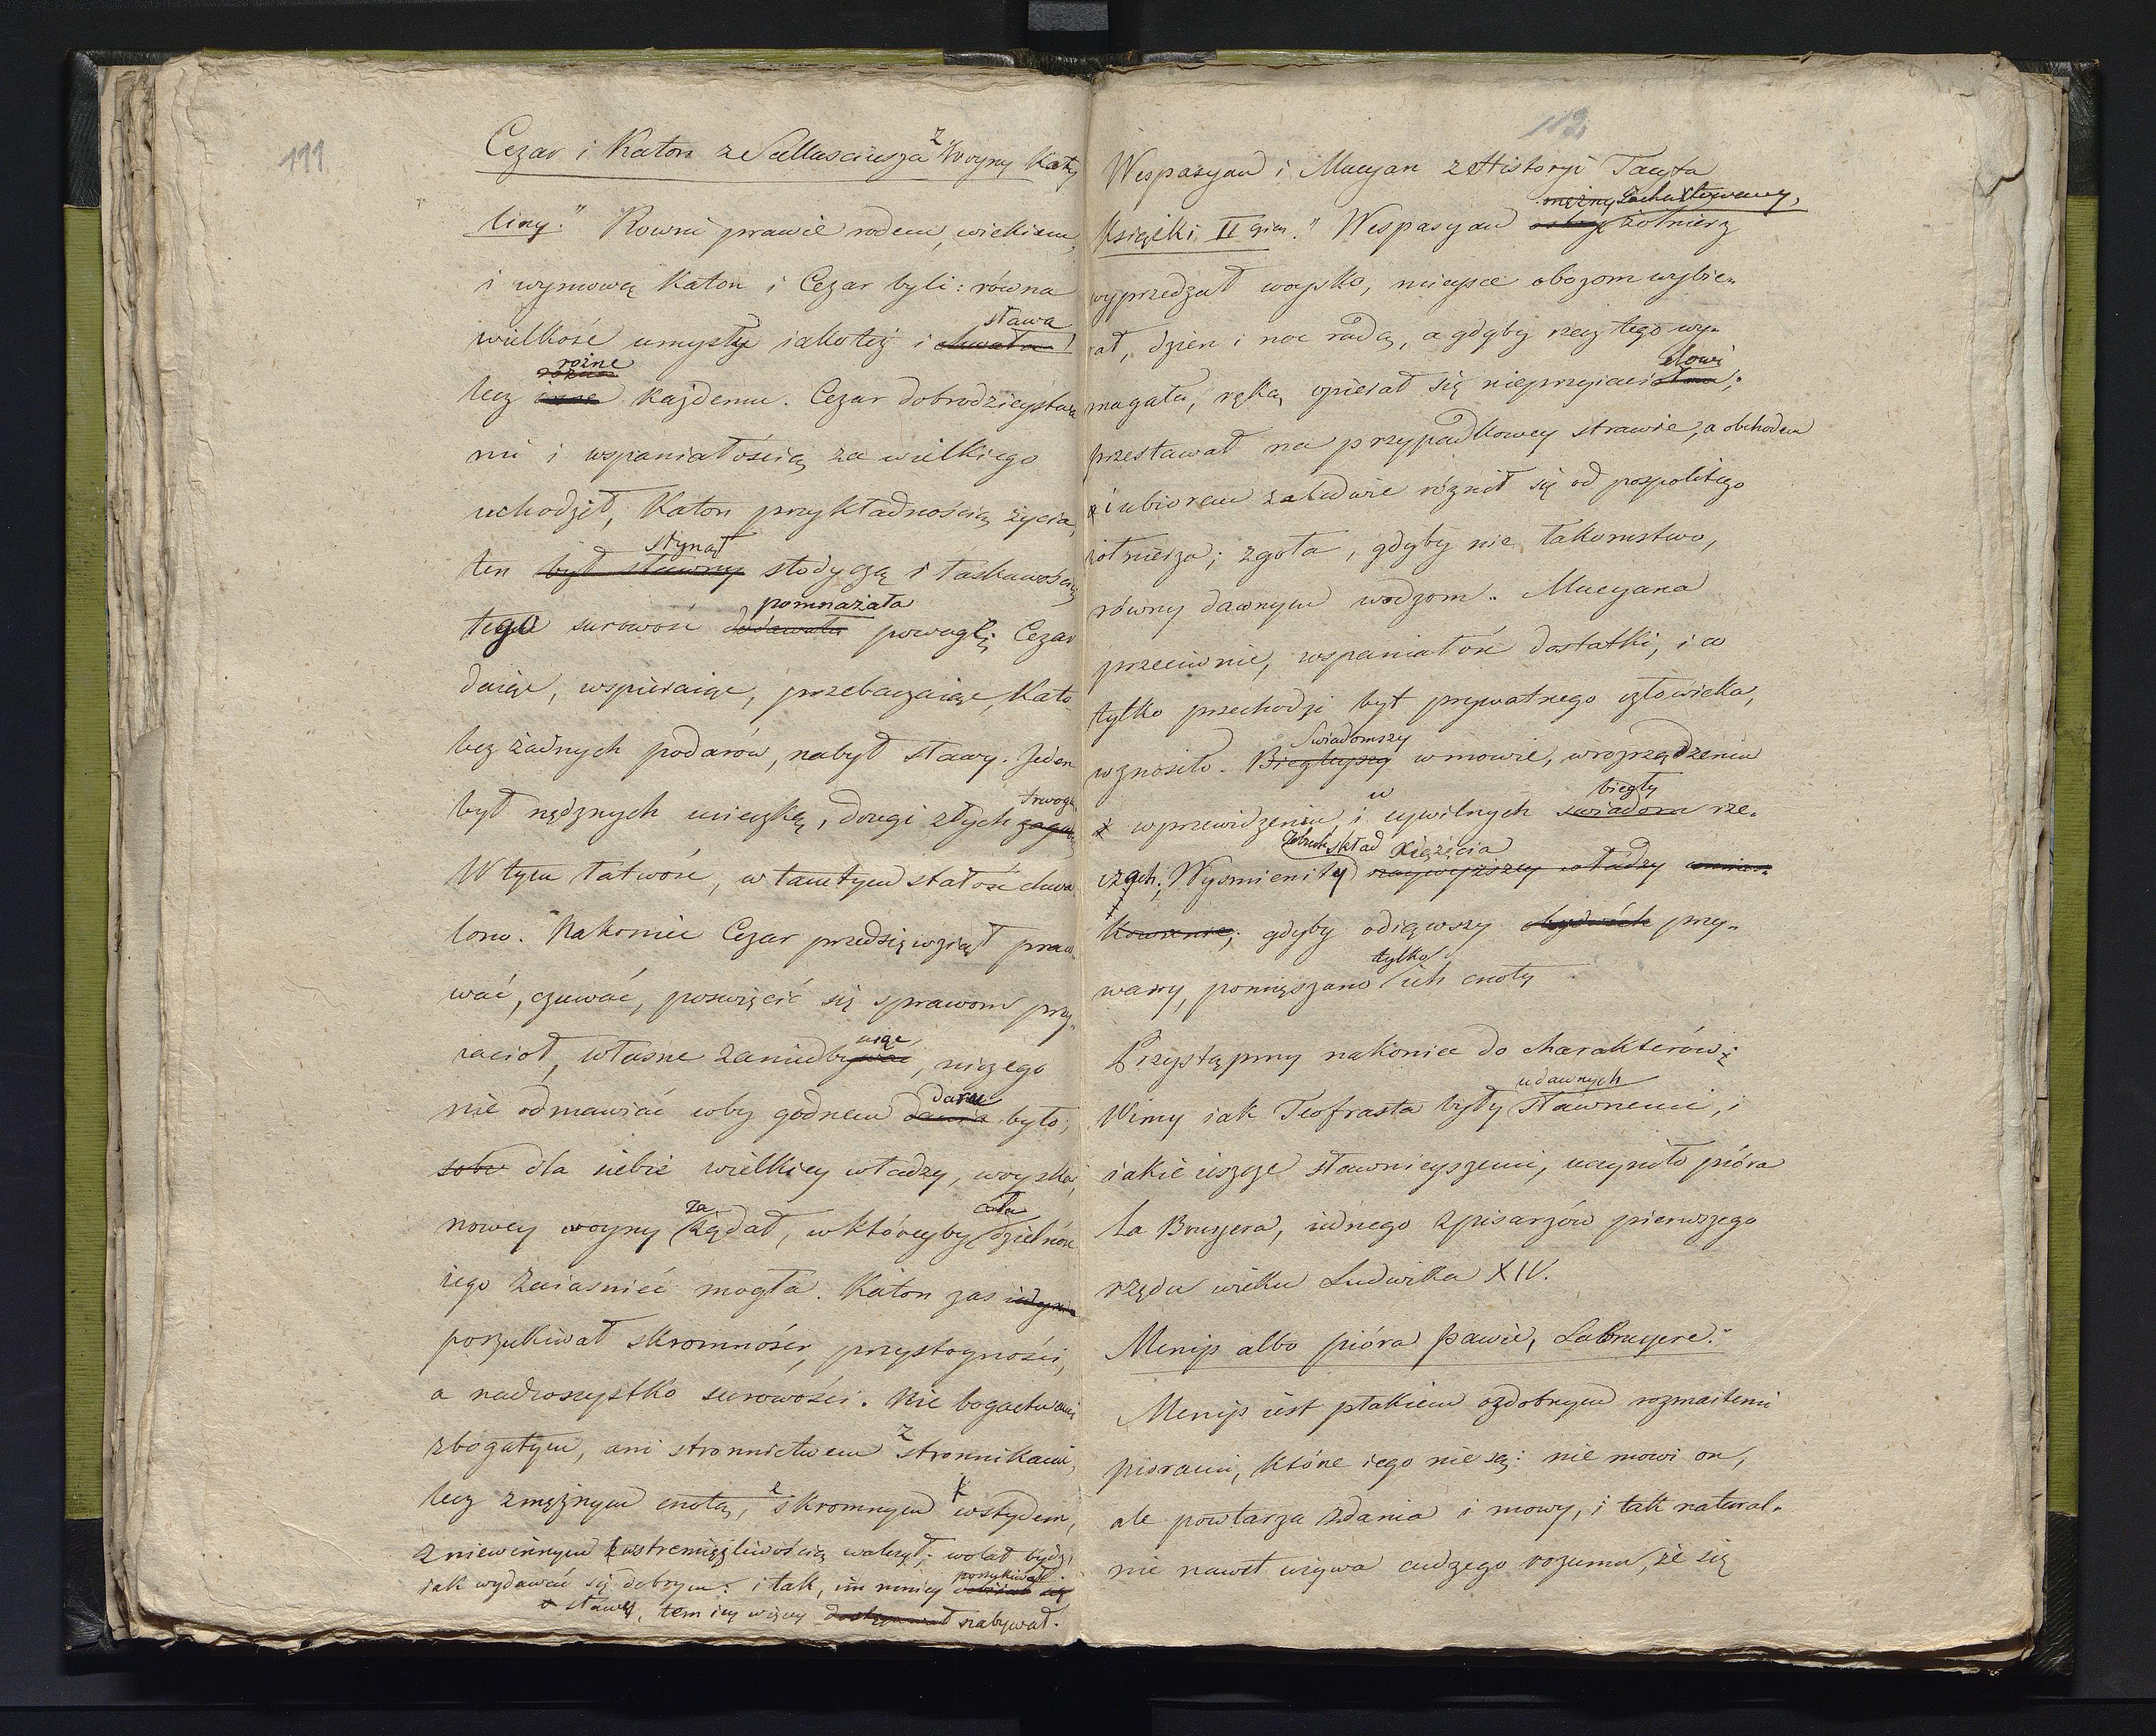 111.
Cezar i Katon z Sallusciusza z Woyny Katy
liny." Rowni prawie rodem, wiekiem,
i wymową Katon i Cezar byli: równa
wielkość umysłu iakoteż i chwała sława
lecz inne różne rożne każdemu. Cezar dobrodzieystwa
mi i wspaniałością za wielkiego
uchodził, Katon przykładnością życia,
ten był sławny słynął słodyczą i łaskawością
tego surowość dodawała pomnażała powagi; Cezar
daiąc, wspieraiąc, przebaczaiąc, Kato
bez żadnych podarów, nabył sławy. Jeden
był nędznych ucieczką, drugi złych trwogą
W tym łatwość, w tamtym stałość chwa
lono. Nakoniec Cezar przedsięwziął praco
wać, czuwać, poswięcić się sprawom przy„
iaciół, własne zaniedbywać uiąc, niczego
nie odmawiać coby godnem dania daru było;
sobie dla siebie wielkiey władzy, woyska,
nowey woyny za żądał, w któreyby cała dzielność
iego zaiasnieć mogła. Katon zas iedynie
poszukiwał skromności, przystoyności,
a nadwszystko surowości. Nie bogactwami
z bogatym, ani stronnictwem z stronnikami,
lecz z mężnym cnotą, z skromnym wstydem,
z niewinnym wstremięźliwością walczył; wolał bydź,
iak wydawać się dobrym: i tak, im mniey ubiegał się poszukiwał
o sławę, tem iey więcey dostępował nabywał.
112
Wespazyan i Mucyan z Historyi Tacyta
Książki II giey." Wespazyan ostry mężny żołnierz
wyprzedzał woysko, mieysce obozom wybie„
rał, dzien i noc radą, a gdyby rzecz tego wy„
magała, ręką opierał się nieprzyiacielowi;
przestawał na przypadkowey strawie, a obchodem
i ubiorem zaledwie róznił się od pospolitego
żołnierza; zgoła, gdyby nie łakomstwo,
równy dawnym wodzom. Mucyana
przeciwnie, wspaniałość dostatki, i co
tylko przechodzi byt prywatnego człowieka,
wznosiło. Bieglejszy Swiadomszy w mowie, w rozrządzeniu
i w przewidzeniu i w cywilnych swiadom biegły rze„
czach; Wysmienity skład xiążęcia naywyższey władzy umiar„
kowanie; gdyby odiąwszy obydwóch przy„
wary, pomięszano tylko ich cnoty.
Przystąpmy nakoniec do charakterów:
Wimy iak Teofrasta były u dawnych sławnemi, i
iakie ieszcze sławnieyszemi, uczyniło pióro
La Bruyera, iednego z pisarzów pierwszego
rzędu wieku Ludwika XIV.
Menip albo pióra pawie, Labruyere."
Menip iest ptakiem ozdobnym rozmaitemi
piorami, które iego nie są: nie mowi on,
ale powtarza zdania i mowy, i tak natural„
nie nawet używa cudzego rozumu, że się